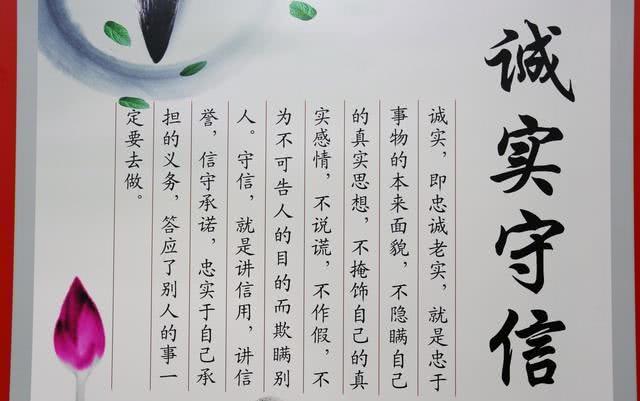 诚实守信
诚实，即忠诚老实，就是忠于
事物的本来面貌，不隐瞒自己
的真实思想，不掩饰自己的真
实感情，不说谎，不作假，不
为不可告人的目的而欺瞒别
人。守信，就是讲信用，讲信
誉，信守承诺，忠实于自己承
担的义务，答应了别人的事一
定要去做。